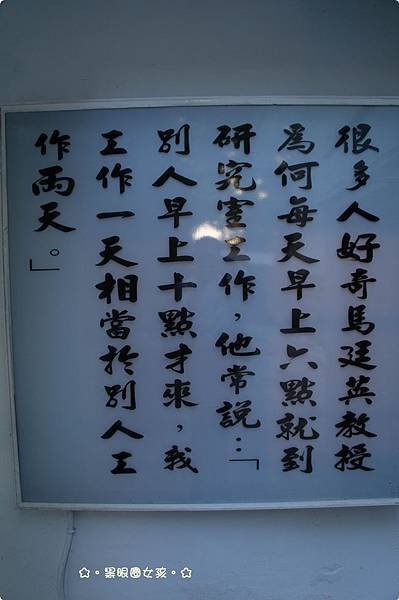 很多人好奇馬廷英教授
為何每天早上六點就到
研究室工作，他常說：「
別人早上十點才來，我
工作一天相當於別人工
作兩天。」
☆。黑眼圈女孩。☆